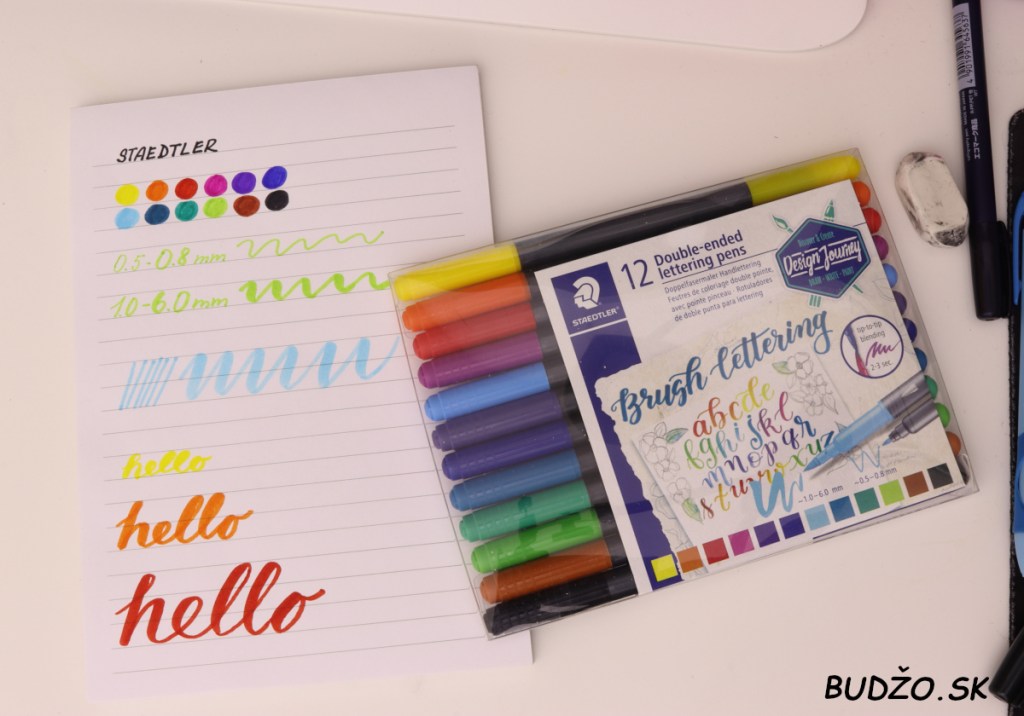 STAEDTLER
0.5-0.8mm
1.0-6.0mm
hello
hello
hello
STAEDTLER
12 Double-ended
lettering pens
Doppelfasermaler Handlettering
Feutres de coloriage double pointe,
avec pointe pinceau · Rotuladores
de doble punta para lettering
Discover & Create
Design Journey
DRAW · WRITE · PAINT
tip-to-tip
blending
2-3 sec.
Brush lettering
abcde
fghijkl
mnopqr
stuvwxyz
~1.0-6.0 mm
~0.5-0.8 mm
BUDŽO.SK